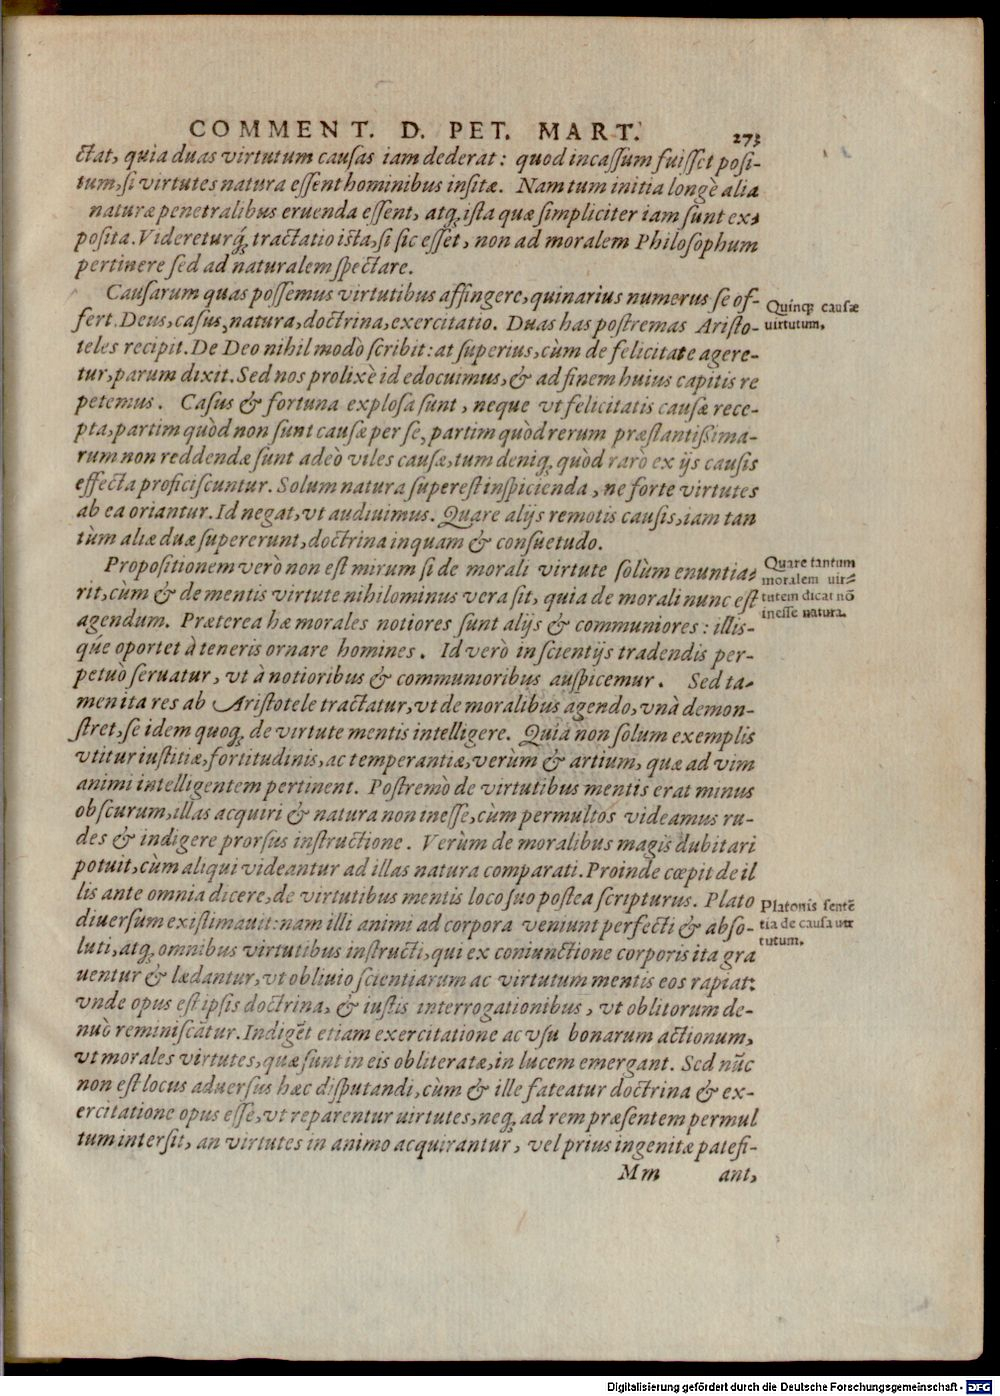 COMMENT. D. PET. MART. 273
ctat, quia duas virtutum causas iam dederat: quod incassum fuisset posi-
tum, si virtutes natura essent hominibus insitæ. Nam tum initia longè alia
naturæ penetralibus eruenda essent, atq; ista quæ simpliciter iam sunt ex-
posita. Videreturq́; tractatio ista, si sic esset, non ad moralem Philosophum
pertinere sed ad naturalem spectare.
Causarum quas possemus virtutibus affingere, quinarius numerus se of-
Quinq; causæ
fert. Deus, casus, natura, doctrina, exercitatio. Duas has postremas Aristo-
uirtutum.
teles recipit. De Deo nihil modò scribit: at superius, cùm de felicitate agere-
tur, parum dixit. Sed nos prolixè id edocuimus, & ad finem huius capitis re
petemus. Casus & fortuna explosa sunt, neque vt felicitatis causæ rece-
pta, partim quòd non sunt causæ per se, partim quòd rerum præstantißima-
rum non reddendæ sunt adeò viles causæ, tum deniq; quòd rarò ex ijs causis
effecta proficiscuntur. Solum natura superest inspicienda, ne forte virtutes
ab ea oriantur. Id negat, vt audiuimus. Quare alijs remotis causis, iam tan
tùm aliæ duæ supererunt, doctrina inquam & consuetudo.
Propositionem verò non est mirum si de morali virtute solùm enuntia-
Quare tantum
moralem uir-
rit, cùm & de mentis virtute nihilominus vera sit, quia de morali nunc est
tutem dicat nõ
agendum. Præterea hæ morales notiores sunt alijs & communiores: illis-
inesse natura.
qúe oportet à teneris ornare homines. Id verò in scientijs tradendis per-
petuò seruatur, vt à notioribus & communioribus auspicemur. Sed ta-
men ita res ab Aristotele tractatur, vt de moralibus agendo, vnà demon-
stret, se idem quoq; de virtute mentis intelligere. Quia non solum exemplis
vtitur iustitiæ, fortitudinis, ac temperantiæ, verùm & artium, quæ ad vim
animi intelligentem pertinent. Postremò de virtutibus mentis erat minus
obscurum, illas acquiri & natura non inesse, cùm permultos videamus ru-
des & indigere prorsus instructione. Verùm de moralibus magis dubitari
potuit, cùm aliqui videantur ad illas natura comparati. Proinde cœpit de il
lis ante omnia dicere, de virtutibus mentis loco suo postea scripturus. Plato
Platonis sentẽ
diuersum existimauit: nam illi animi ad corpora veniunt perfecti & abso-
tia de causa uir
luti, atq; omnibus virtutibus instructi, qui ex coniunctione corporis ita gra
tutum.
uentur & lædantur, vt obliuio scientiarum ac virtutum mentis eos rapiat:
vnde opus est ipsis doctrina, & iustis interrogationibus, vt oblitorum de-
nuò reminiscãtur. Indigẽt etiam exercitatione ac vsu bonarum actionum,
vt morales virtutes, quæ sunt in eis obliteratæ, in lucem emergant. Sed nũc
non est locus aduersus hæc disputandi, cùm & ille fateatur doctrina & ex-
ercitatione opus esse, vt reparentur uirtutes, neq; ad rem præsentem permul
tum intersit, an virtutes in animo acquirantur, vel prius ingenitæ patefi-
Mm ant,
Digitalisierung gefördert durch die Deutsche Forschungsgemeinschaft - DFG